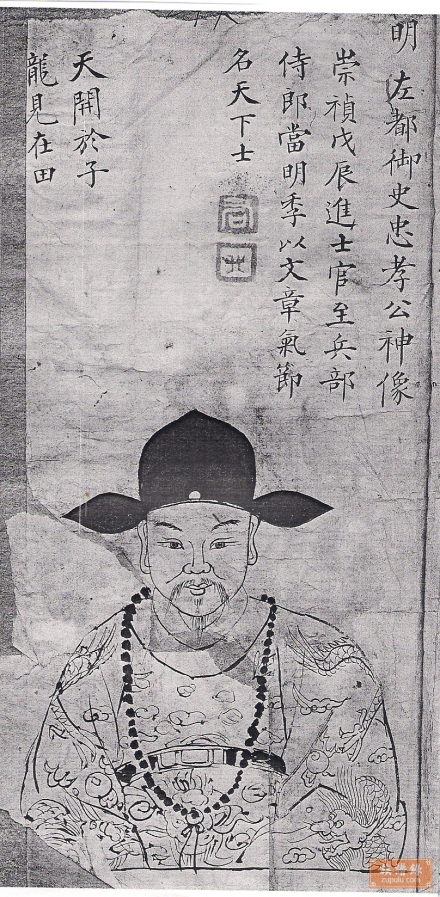 明 左都御史忠孝公神像
崇禎戊辰進士官至兵部
侍郎當明季以文章氣節
名天下士
天開於子
龍見在田